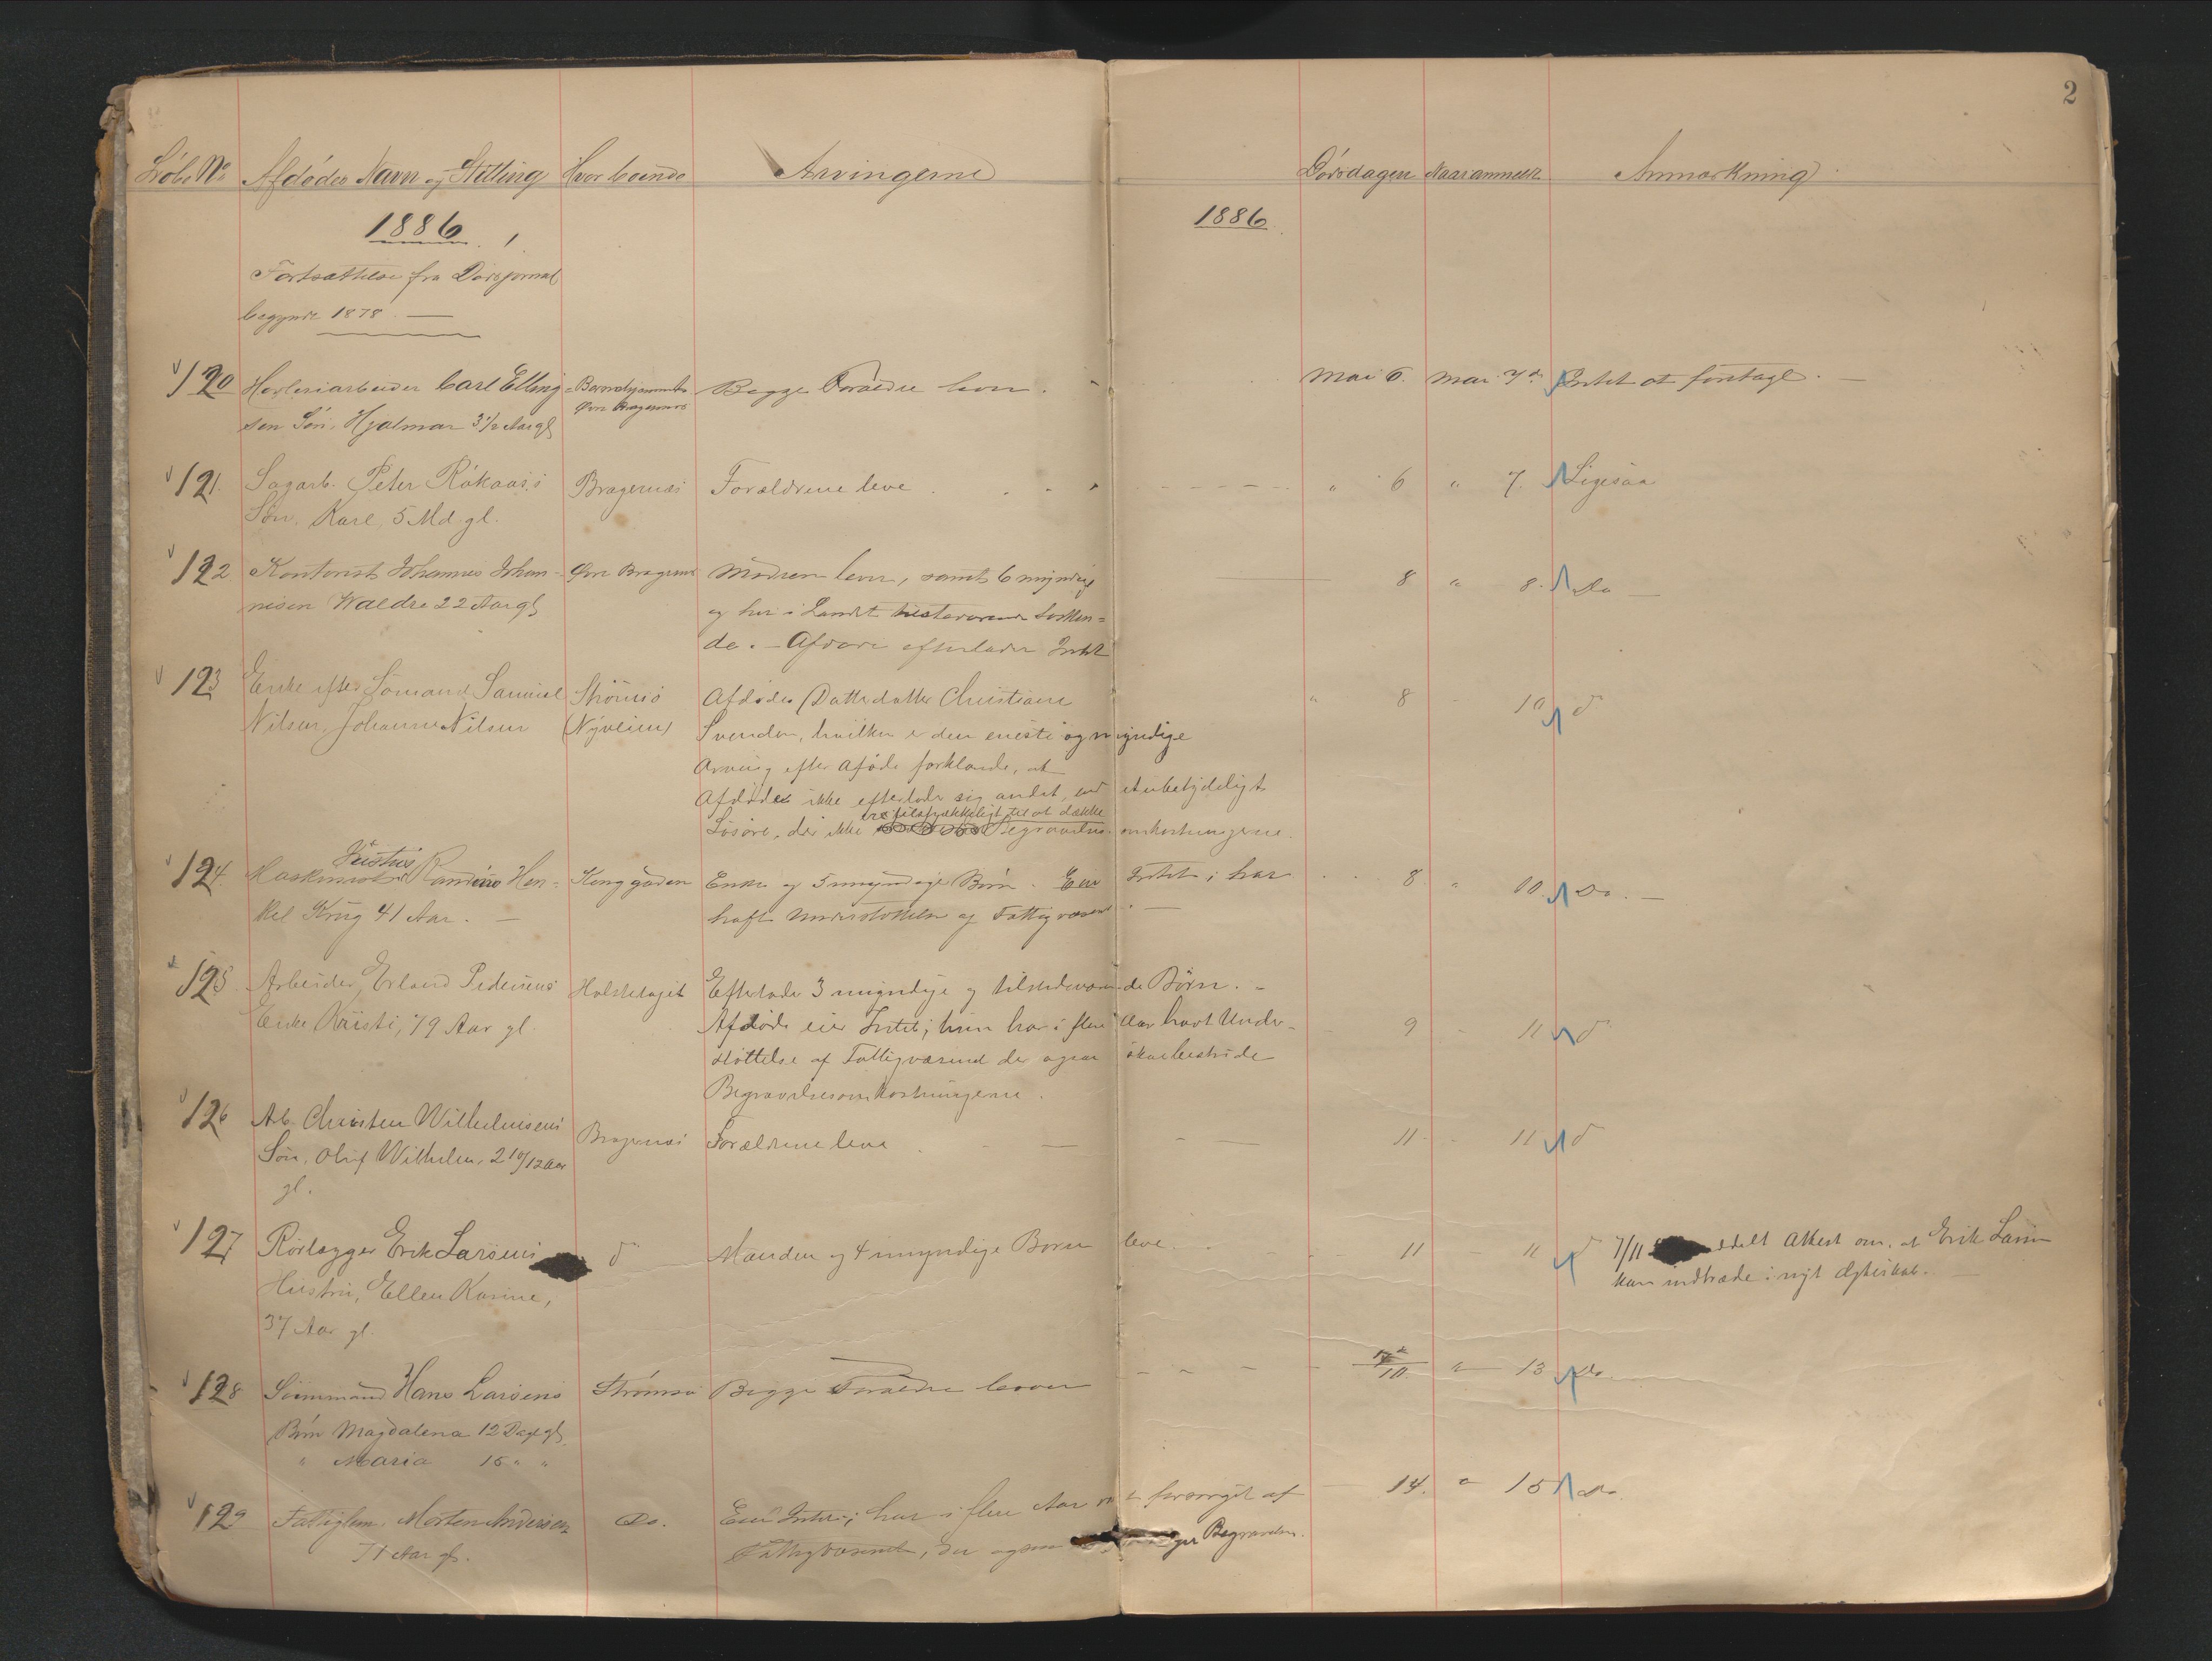 2
Löbe No Afdødes Navn og Stilling Hvor boende Arvingerne Dødsdagen Naar anmeldt Anmærkning
1886. 1886.
Fortsættelse fra Dødsjornal
begyndt 1878. —
120 Høvleriarbeider Carl Elling- Øvre Bragernæs Begge Forældre lever. Mai 6. Mai 7de Intet at foretage. —
sen Søn, Hjalmar 3 1/2 Aar gl
121. Sagarb. Peter Rökaas's Bragernæs Forældrene leve " 6 " 7. Ligesaa
Søn, Karl, 5 Md. gl.
122 Kontorist Johannes Johan- Øvre Bragernæs Modren lever, samt 6 myndige 8 " 8. Do —
nesen Waldre 22 Aar gl og her i Landet tilstedeværende Søsken-
de. — Afdøde efterlader Intet
123 Enke efter Sömand Samuel Strömsö Afdødes Datterdatter Christiane " 8 - 10 do
Nilsen, Johanne Nilsen (Nyveien) Svendsen, hvilken er den eneste og myndige
Arving efter Afdöde forklarede, at
Afdöde ikke efterlader sig andet, end et ubetydeligt
er tilstrækkeligt til at dække
Lösöre, der ikke Begravelsesomkostningerne.
124 Maskinist Kandino Hen- Konggaden Enke og 5 umyndige Børn. Eier Intet; har 8. " 10. Do. —
kel Krug 41 Aar. — havt Understøttelse af Fattigvæsenet. —
125 Arbeider Erland Pedersens Holstelaget Efterlader 3 myndige og tilstedeværende Börn. — 9 - 11 do
Enke Kristi, 79 Aar gl. Afdöde eier Intet; hun har i flere Aar havt Under-
støttelse af Fattigvæsenet der ogsaa skal bestride
Begravelsesomkostningerne.
126 Arb. Christen Wilhelmsens Bragernæs Forældrene leve — 11. - 11 do
Sön, Oluf Wilhelm, 2 10/12 Aar
gl.
127 Rörlægger Erik Larsens do Manden og 4 umyndige Børn leve. 11 - 11 do 7/11 ddelt Attest om, at Erik Larsen
Hustru, Ellen Karine, kan indtræde i nyt Ægteskab.
37 Aar gl.
128 Sömmand Hans Larsens Strømsø Begge Forældre lever 10 " 13 do
Börn Magdalena 12 Dage gl.
" Maria 15 " "
129 Fattiglem Morten Andersen Do. Eier Intet; har i flere Aar forsørget af 14. " 15 Do.
71 Aar gl. Fattigvæsenet, der ogsaa ger Begravelsen.